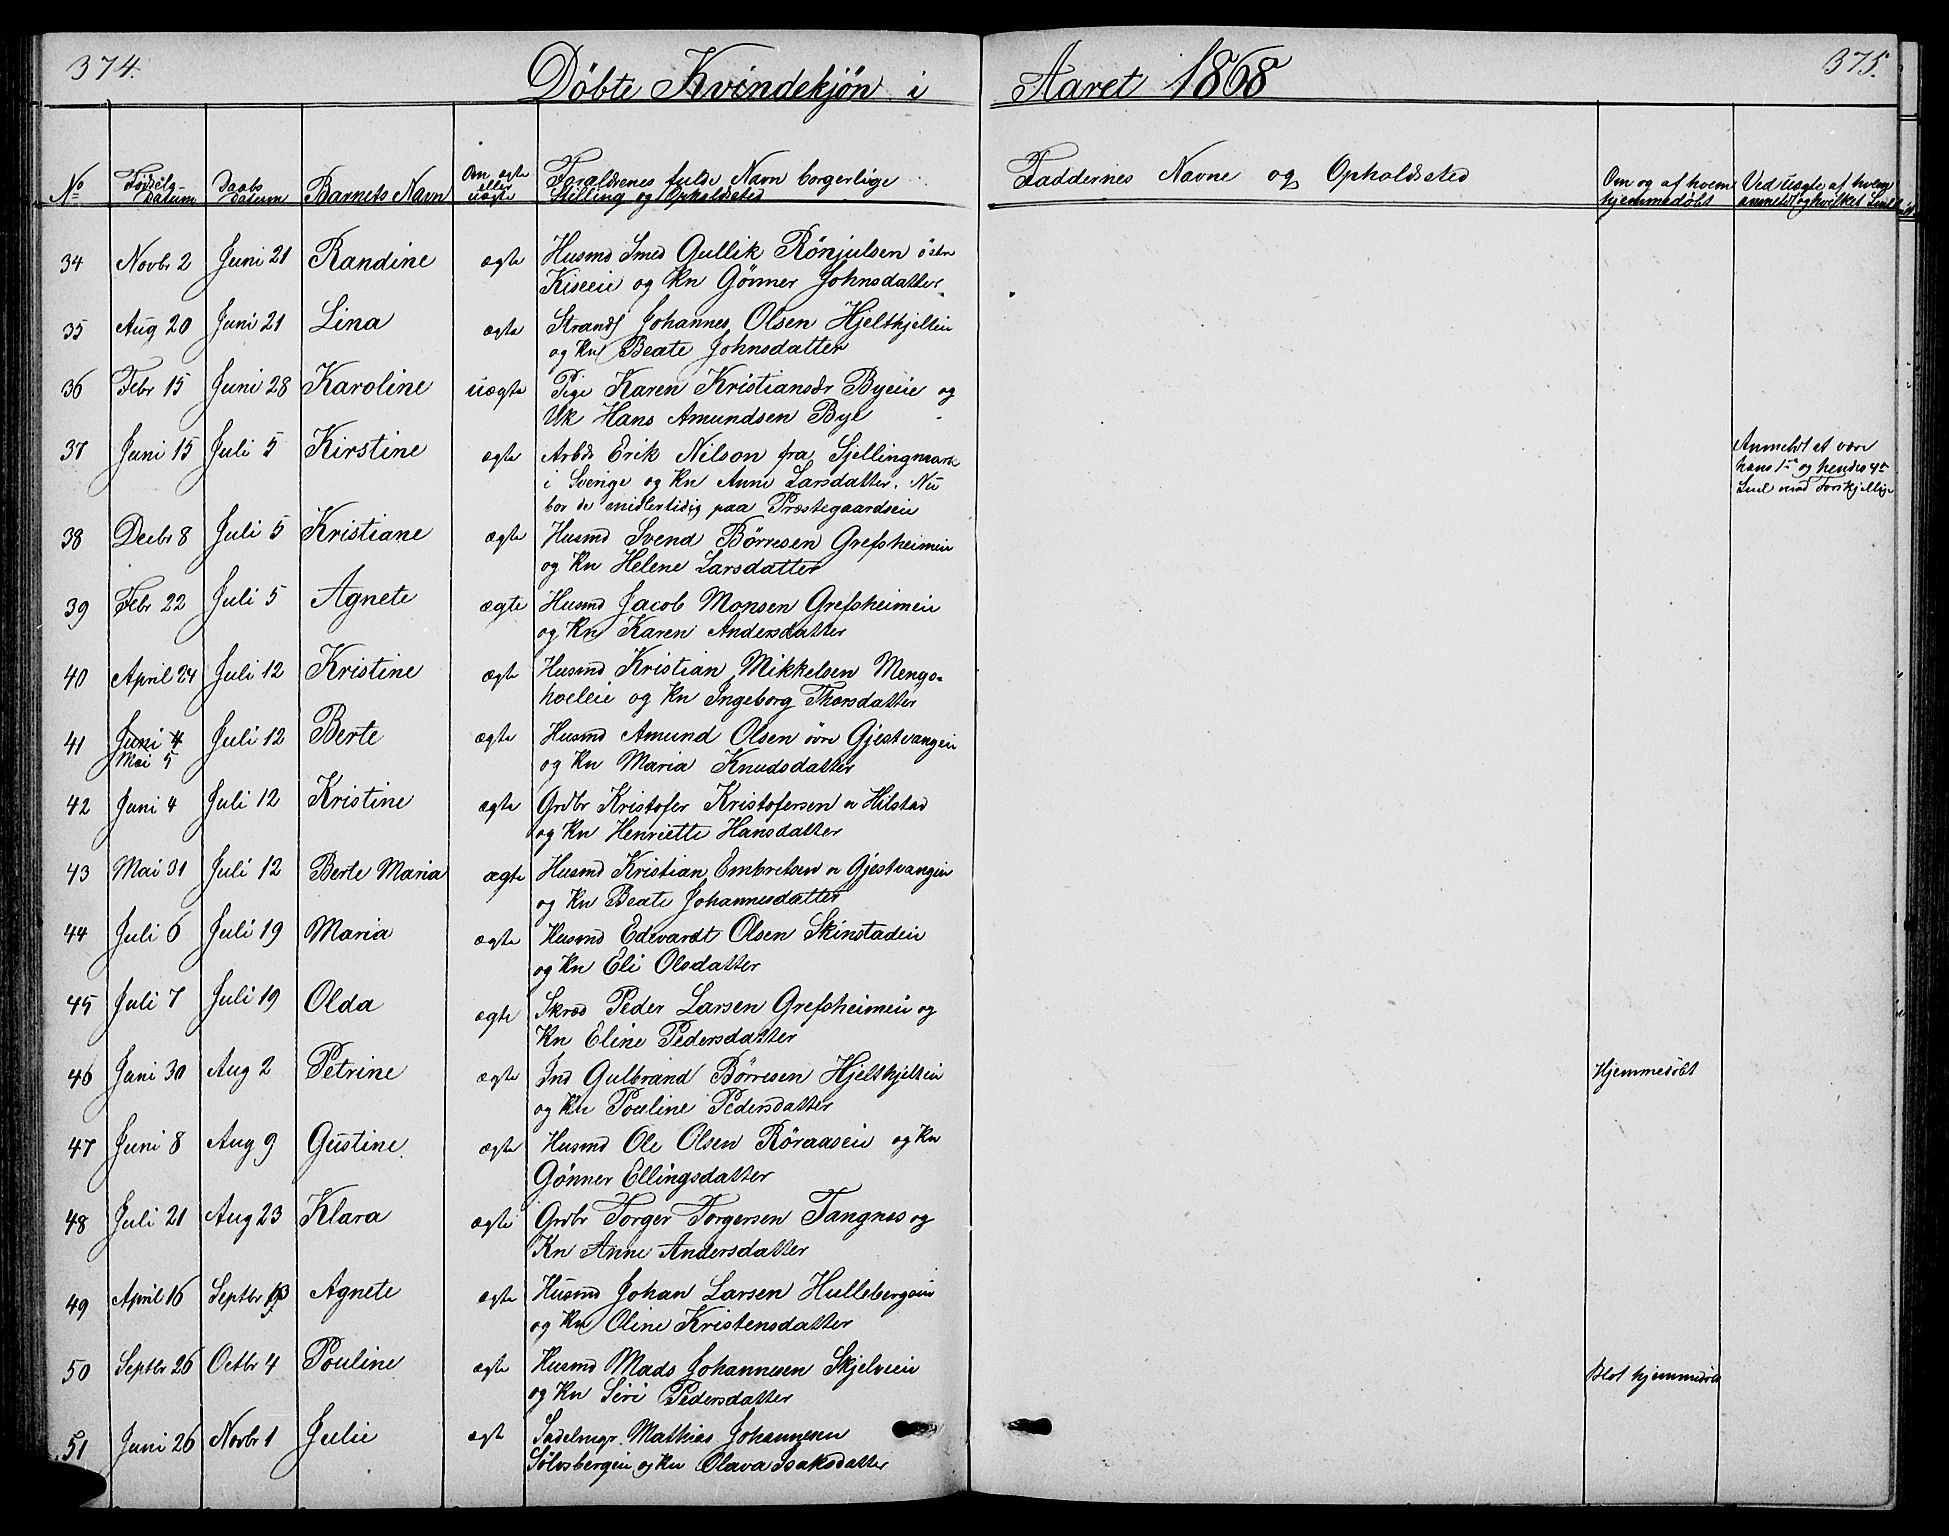 374.
Döbte Kvindekjön i Aaret 1868
375.
No
Födsels Datum
Daabs Datum
Barnets Navn
Om ægte eller uægte
Forældrenes fulde Navn borgerlige Stilling og Opholdsted
Faddernes Navne og Opholdsted
Om og af hvem hjemmedöbt
Ved uægte af hvem anmeldt og hvilket Leul
34 Novbr 2 Juni 21 Randine ægte Husmd Smed Gullik Rönjulsen östr
Kiseeie og Kn Gönner Johnsdatter
35 Aug 20 Juni 21 Lina ægte Strands Johannes Olsen Hjelthjelleie
og Kn Beate Johnsdatter
36 Febr 15 Juni 28 Karoline uægte Pige Karen Kristiansdr Byeie og
Uk Hans Amundsen Bye
37 Juni 15 Juli 5 Kirstine ægte Arbdr Erik Nilson fra Sjellingmark
i Sverige og Kn Anne Larsdatter. Nu
bor de midlertidig paa Præstegaardseie
Anmeldt at være
hans 1ste og hendes 4de
Leul med Forskjellige
38 Decbr 8 Juli 5 Kristiane ægte Husmd Svend Börresen Grefsheimeie
og Kn Helene Larsdatter
39 Febr 22 Juli 5 Agnete ægte Husmd Jacob Monsen Grefsheimeie
og Kn Karen Andersdatter
40 April 24 Juli 12 Kristine ægte Husmd Kristian Mikkelsen Mengs-
hoeleie og Kn Ingeborg Thorsdatter
41 Juni 4 Juli 12 Berte ægte Husmd Amund Olsen övre Gjestvangeie
Mai 5 og Kn Maria Knudsdatter
42 Juni 4 Juli 12 Kristine ægte Grdbr Kristofer Kristofersen n Hilstad
og Kn Henriette Hansdatter
43 Mai 31 Juli 12 Berte Maria ægte Husmd Kristian Embretsen n Gjestvangeie
og Kn Beate Johannesdatter
44 Juli 6 Juli 19 Maria ægte Husmd Edevardt Olsen Skinstadeie
og Kn Eli Olsdatter
45 Juli 7 Juli 19 Olda ægte Skræd Peder Larsen Grefsheimeie og
Kn Eline Pedersdatter
46 Juni 30 Aug 2 Petrine ægte Ind Gulbrand Börresen Hjelthjelleie Hjemmedöbt
og Kn Pouline Pedersdatter
47 Juni 8 Aug 9 Gustine. ægte Husmd Ole Olsen Röraaseie og Kn
Gönner Ellingsdatter
48 Juli 21 Aug 23 Klara ægte Grdbr Torger Torgersen Tangnes og
Kn Anne Andersdatter
49 April 16 Septbr 13 Agnete ægte Husmd Johan Larsen Hullebergseie
og Kn Oline Kristensdatter
50 Septbr 26 Octbr 4 Pouline ægte Husmd Mads Johannesen Skjelveeie Blot hjemmedöbt
og Kn Siri Pedersdatter
51 Juni 26 Novbr 1 Julie ægte Sadelmgr. Mathias Johannesen
Sölvsbergeie og Kn Olava Isaksdatter